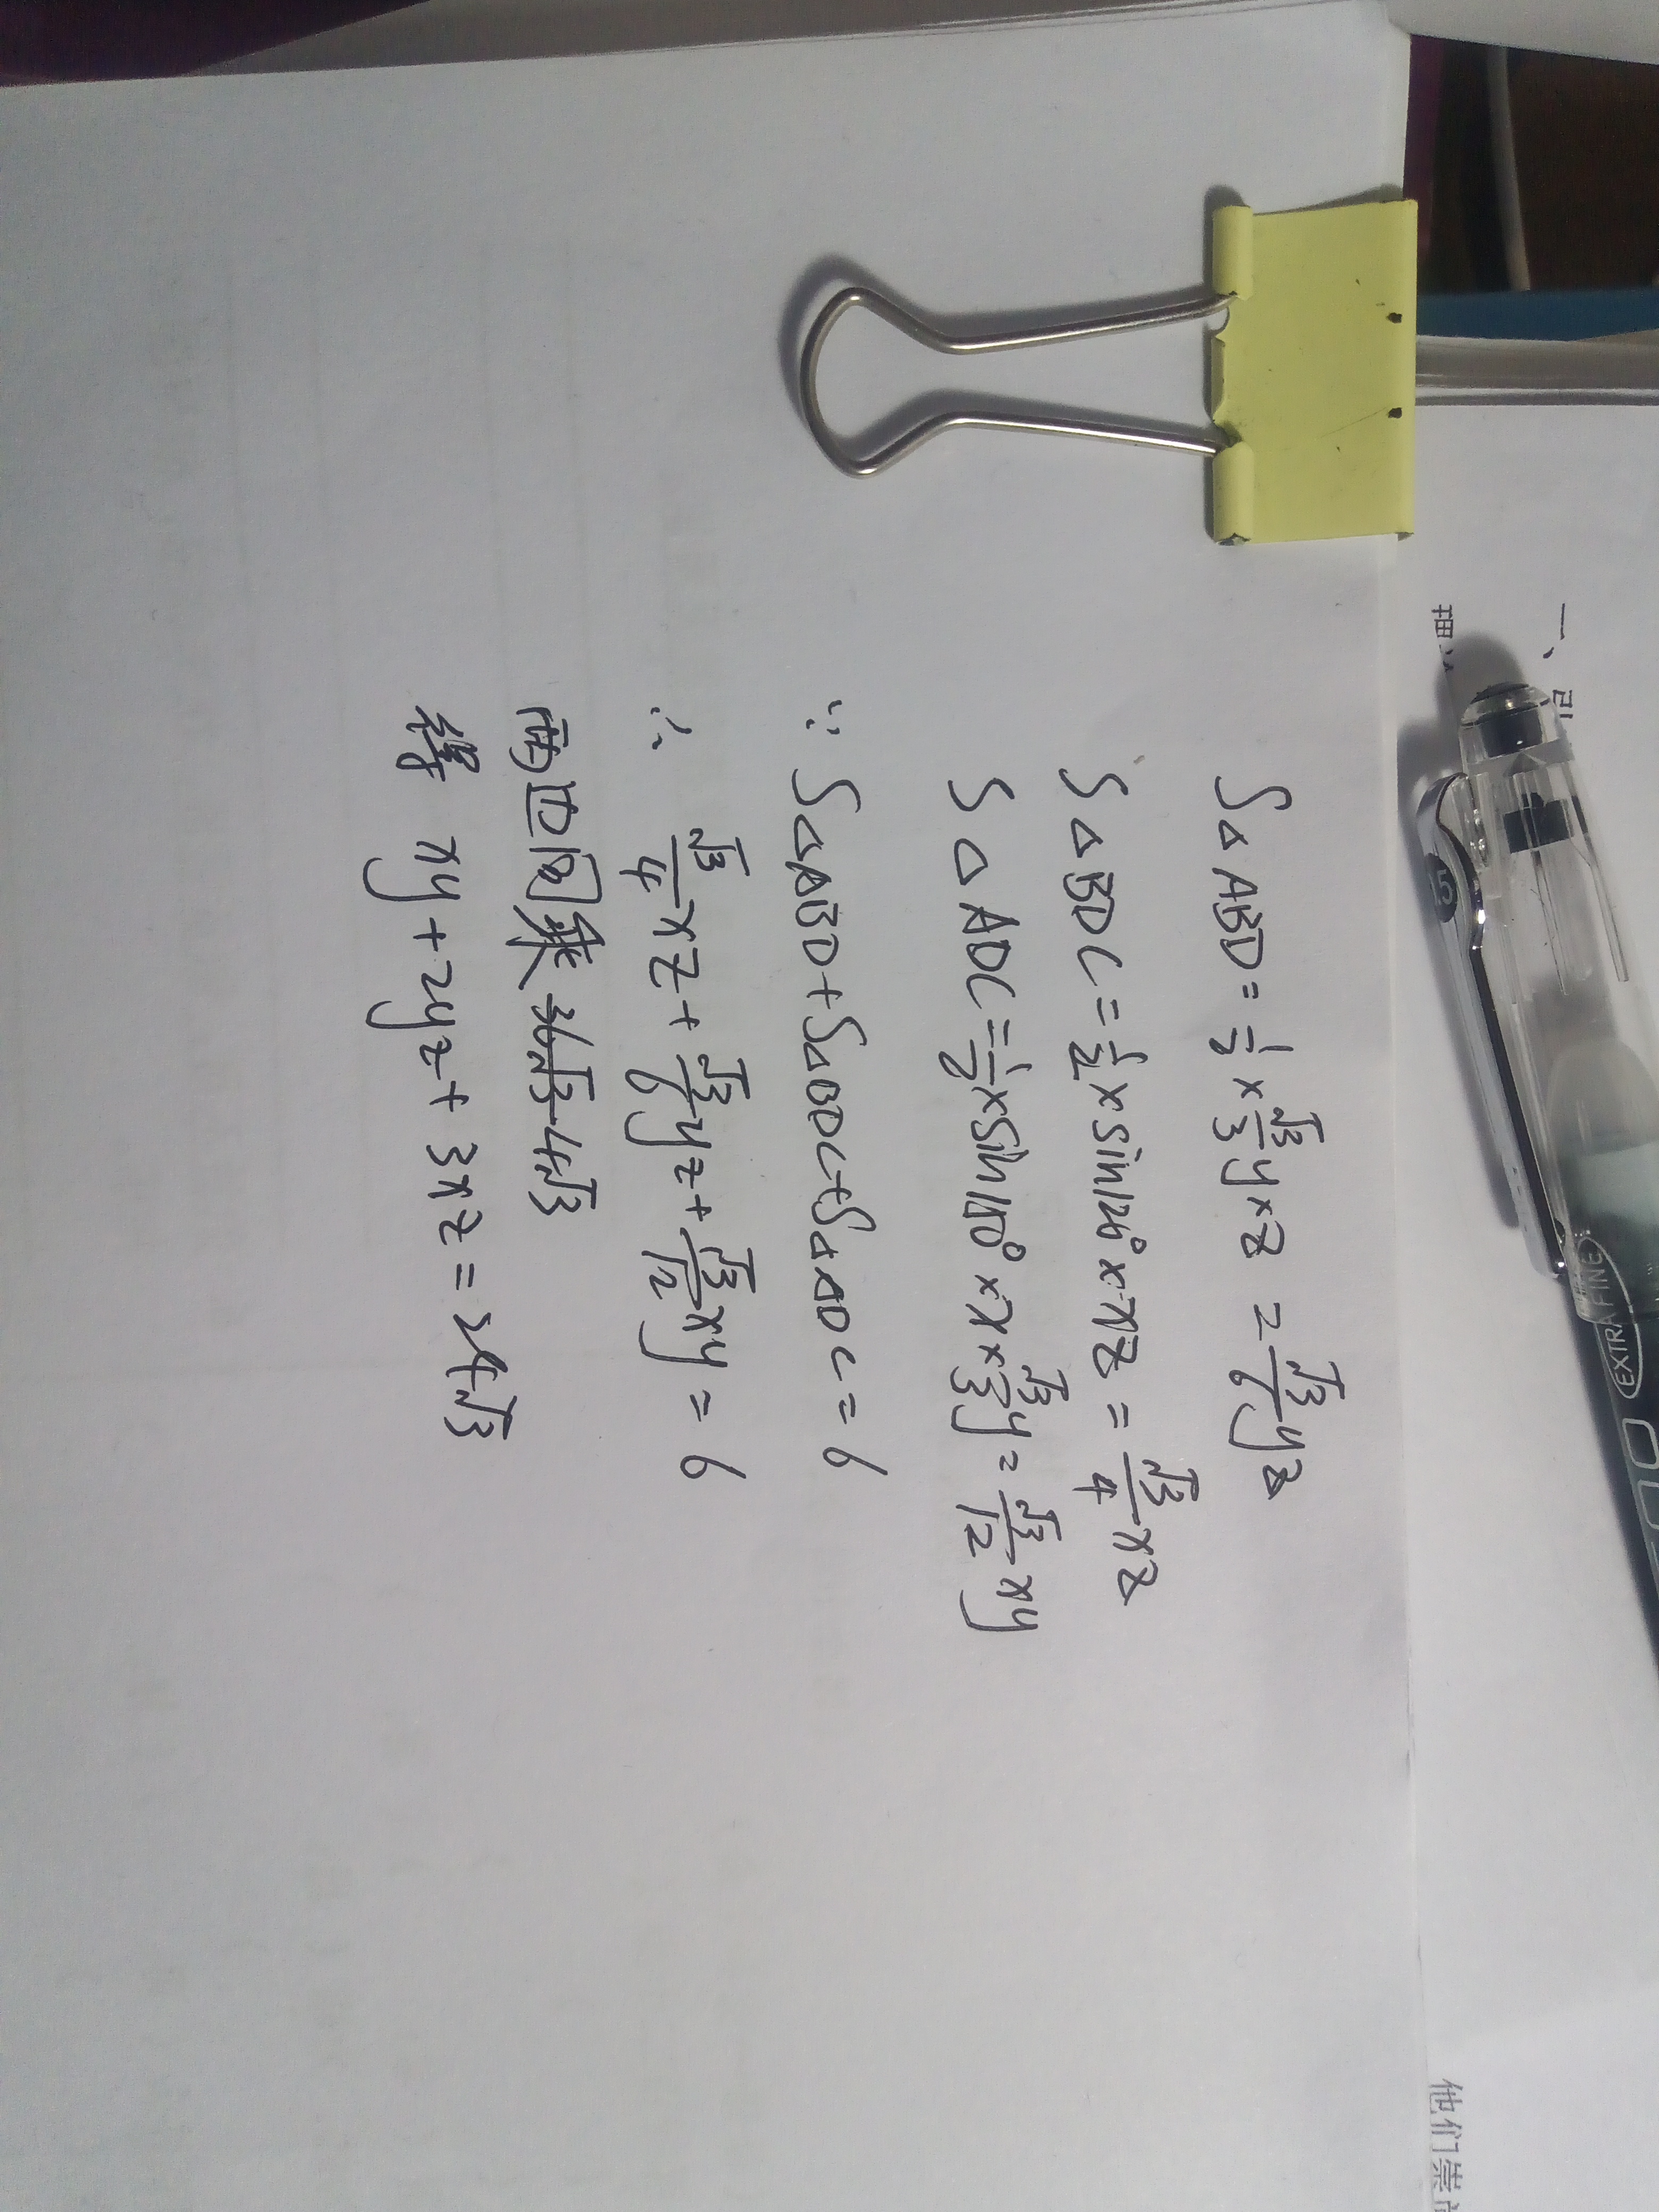 S△ABD=1/2×√3/3y×z=√3/6yz
S△BDC=1/2×sin120°×xz=√3/4xz
S△ADC=1/2×sin150°×x×√3/3y=√3/12xy
∵S△ABD+S△BDC+S△ADC=6
∴√3/4xz+√3/6yz+√3/12xy=6
两边同乘4√3
得 xy+2yz+3xz=24√3
一、
0.5
EXTRA FINE
他们崇尚